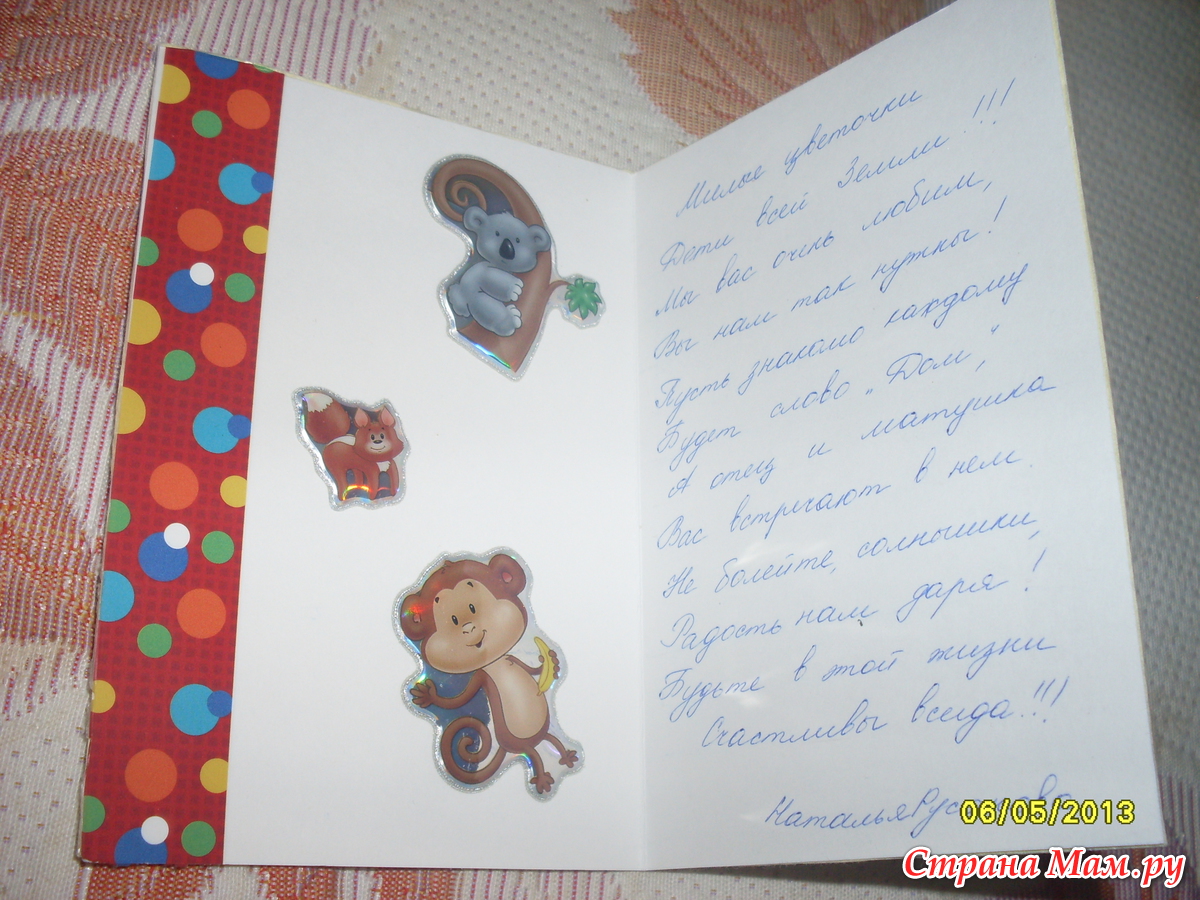 Милые цветочки
Дети всей Земли!!!
Мы вас очень любим,
Вы нам так нужны!
Пусть знакомо каждому
Будет слово „Дом”,
А отец и матушка
Вас встречают в нём.
Не болейте, солнышки,
Радость нам даря!
Будьте в этой жизни
Счастливы всегда!!!
Наталья
06/05/2013
Страна Мам.ру